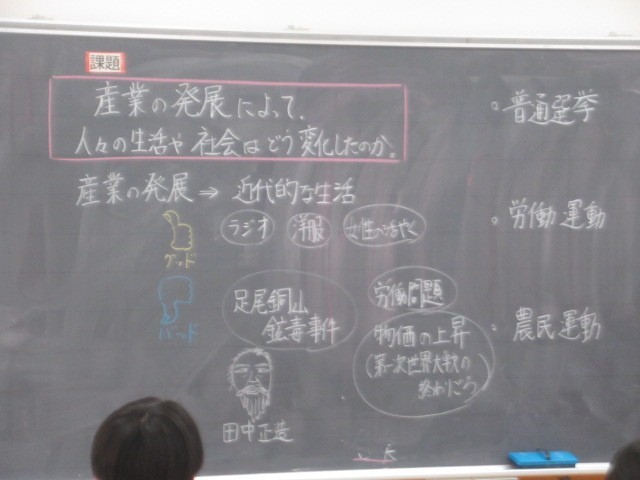 課題
産業の発展によって、
人々の生活や社会はどう変化したのか。
産業の発展⇒近代的な生活
グッド
ラジオ
洋服
女性の活やく
バッド
足尾銅山
鉱毒事件
労働問題
物価の上昇
(第一次世界大戦の
終わりごろ)
田中正造
・普通選挙
・労働運動
・農民運動